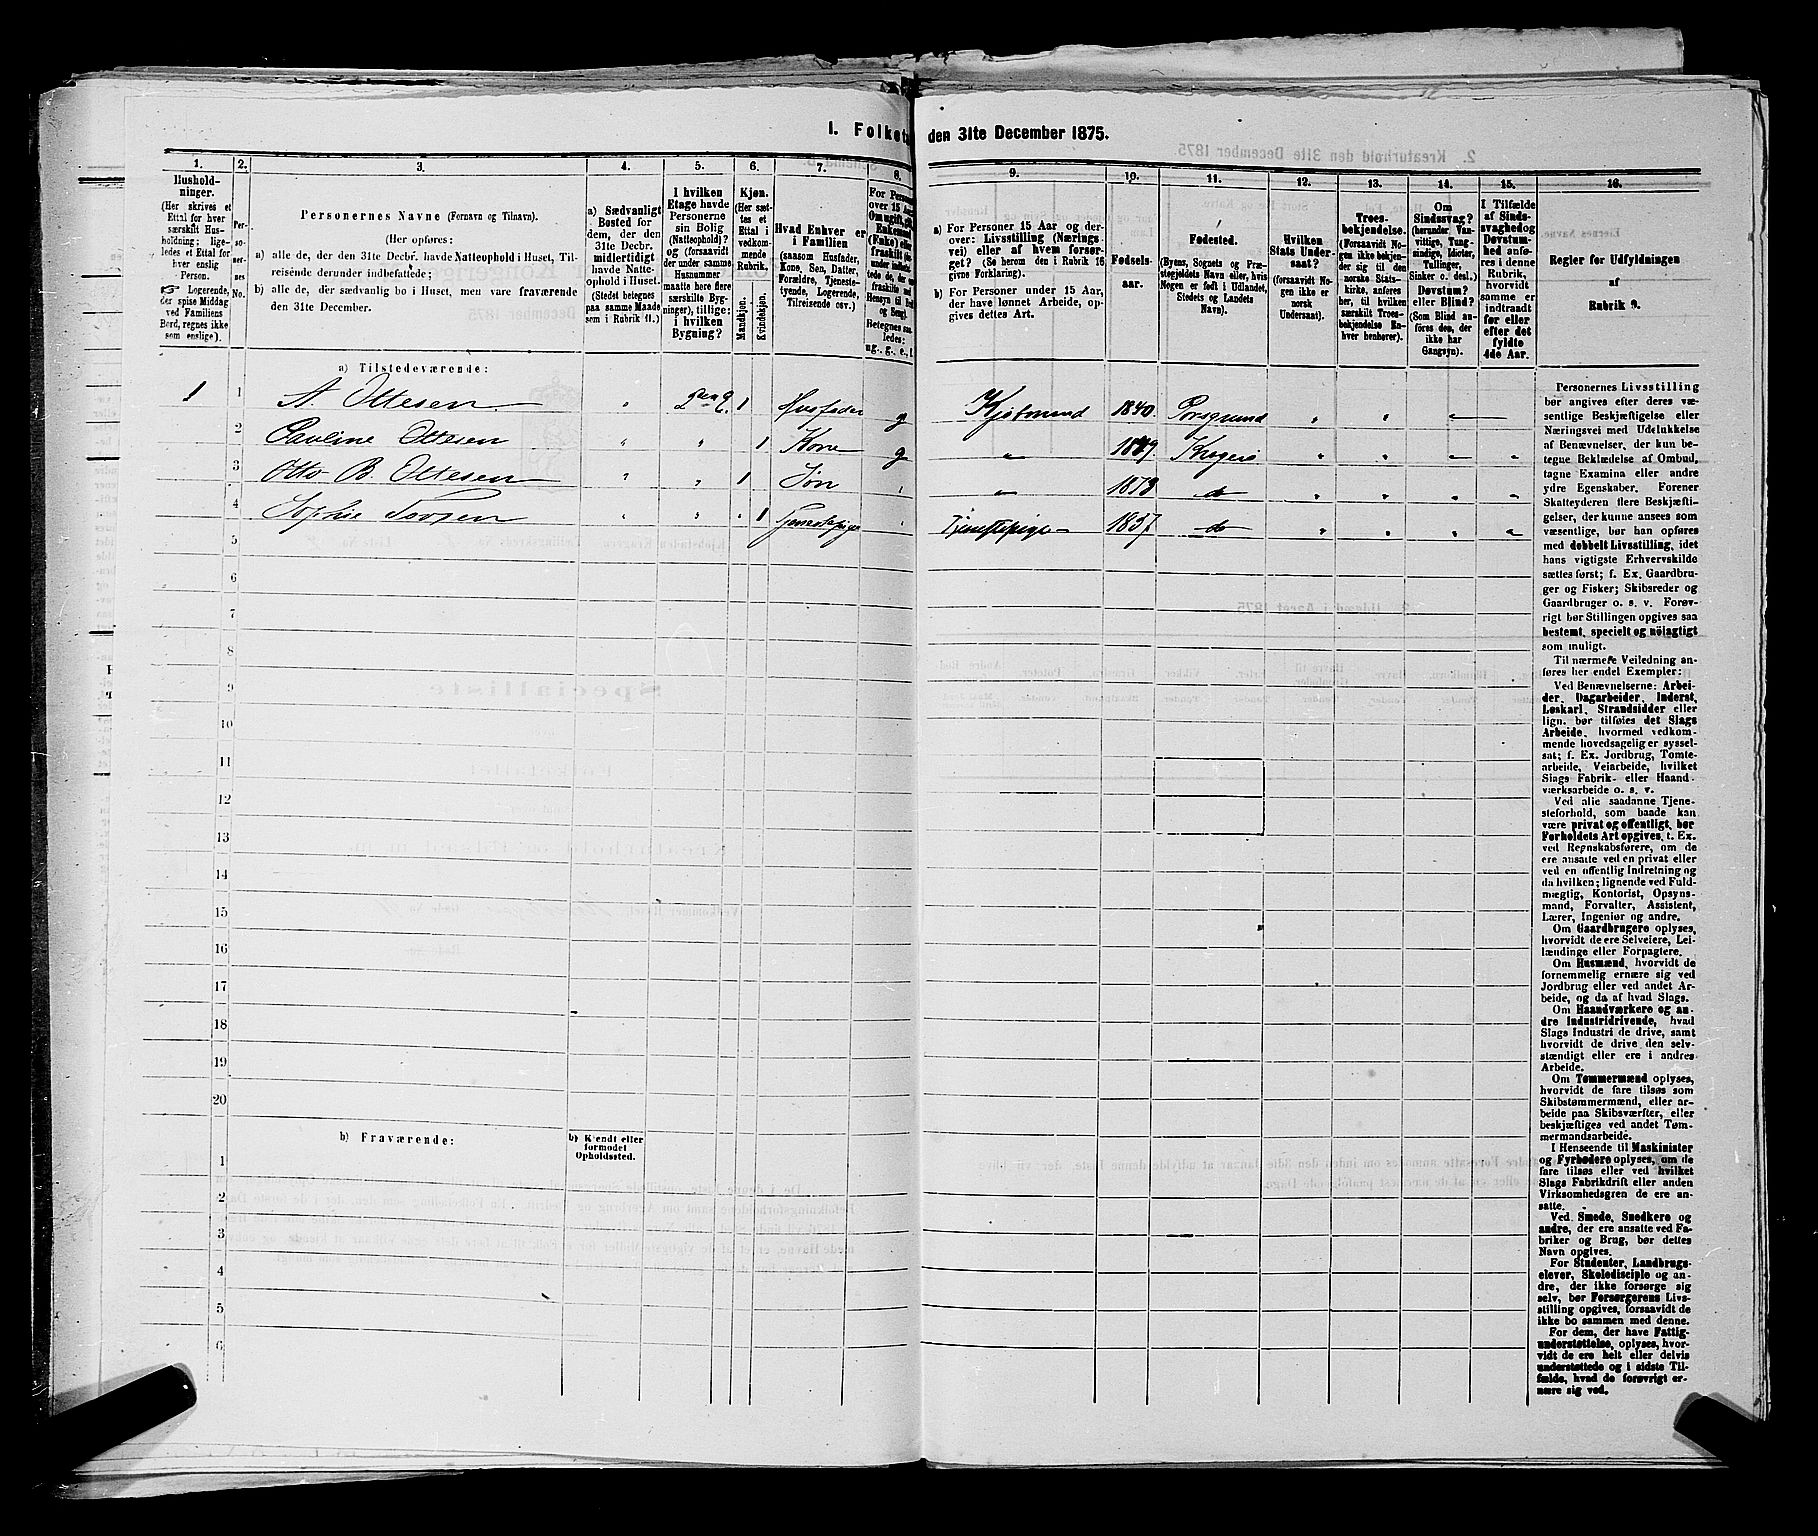 I. Folketæ den 31te December 1875.
1. 2. 3. 4. 5. 6. 7. 8. 9. 10. 11. 12. 13. 14. 15. 16.
Hushold-
ninger.
(Her skrives et
Ettal for hver
særskilt Hus-
holdning; lige-
ledes et Ettal for
hver enslig
Person.
☞ Logerende,
der spise Middag
ved Familiens
Bord, regnes ikke
som enslige).
Per-
so-
ner-
nes
No.
Personernes Navne (Fornavn og Tilnavn).
(Her opføres:
a) alle de, der den 31te Decbr. havde Natteophold i Huset, Til-
reisende derunder indbefattede;
b) alle de, der sædvanlig bo i Huset, men vare fraværende
den 31te December.
a) Sædvanligt
Bosted for
dem, der den
31te Decbr.
midlertidigt
havde Natte-
ophold i Huset.
(Stedet betegnes
paa samme Maade
som i Rubrik 11.)
I hvilken
Etage havde
Personerne
sin Bolig
(Natteophold)?
og (forsaavidt
der under samme
Husnummer
maatte høre flere
særskilte Byg-
ninger), tillige:
i hvilken
Bygning?
Kjøn.
(Her sæt-
tes et
Ettal i
vedkom-
mende
Rubrik.
Mandkjøn.
Kvindekjøn.
Hvad Enhver er
i Familien
(saasom Husfader,
Kone, Søn, Datter,
Forældre, Tjeneste-
tyende, Logerende,
Tilreisende osv.)
For Person
over 15 Aar
Om ugift, gi
Enkemand
(Enke) eller
fraskilt
Betegnes saa-
ledes:
ug., g., e., f.
a) For Personer 15 Aar og der-
over: Livsstilling (Nærings-
vei) eller af hvem forsør-
get? (Se herom den i Rubrik 16
givne Forklaring).
b) For Personer under 15 Aar,
der have lønnet Arbeide, op-
gives dettes Art.
Fødsels-
aar.
Fødested.
(Byens, Sognets og Præ-
stegjeldets Navn eller, hvis
Nogen er født i Udlandet,
Stedets og Landets
Navn).
Hvilken
Stats Under-
saat?
(forsaavidt No-
gen ikke er
norsk
Undersaat).
Troes-
bekjendelse.
(Forsaavidt No-
gen ikke bekjen-
der sig til den
norske Stats-
kirke, anføres
her, til hvilken
særskilt Troes-
bekjendelse En-
hver henhører).
Om
Sindssvag?
(herunder Van-
vittige, Tung-
sindige, Idioter,
Tullinger,
Sinker o. desl.)
Døvstum?
eller Blind?
(Som Blind an-
føres den, der
ikke har
Gangsyn).
I Tilfælde
af Sinds-
svaghed og
Døvstum-
hed anfø-
res i denne
Rubrik,
hvorvidt
samme er
indtraadt
før eller
efter det
fyldte
4de Aar.
Regler for Udfyldningen
af
Rubrik 9.
a) Tilstedeværende:
1 1 A Ottesen " 2den E. 1 Husfader g Kjøbmand 1840 Porsgrund " "
2 Pauline Ottesen " " 1 Kone g " 1849 Kragerø " " " "
3 Otto B. Ottesen " " 1 Søn " " 1873 do " " " "
4 Sophie " " " 1 Tjenestepige " Tjenestepige 1857 do " " " "
5
6
7
8
9
10
11
12
13
14
15
16
17
18
19
20
b) Fraværende:
b) Kjendt eller
formodet
Opholdssted.
1
2
3
4
5
6
Personernes Livsstilling
bør angives efter deres væ-
sentlige Beskjæftigelse eller
Næringsvei med Udelukkelse
af Benævnelser, der kun be-
tegne Beklædelse af Ombud,
tagne Examina eller andre
ydre Egenskaber. Forener
Skatteyderen flere Beskjæfti-
gelser, der kunne ansees som
væsentlige, bør han opføres
med dobbelt Livsstilling, idet
hans vigtigste Erhvervskilde
sættes først; f. Ex. Gaardbru-
ger og Fisker; Skibsreder og
Gaardbruger o. s. v. Forøv-
rigt bør Stillingen opgives saa
bestemt, specielt og nöiagtigt
som muligt.
Til nærmere Veiledning an-
føres her endel Exempler:
Ved Benævnelserne: Arbei-
der, Dagarbeider, Inderst,
Løskarl, Strandsidder eller
lign. bør tilføies det Slags
Arbeide, hvormed vedkom-
mende hovedsagelig er syssel-
sat; f. Ex. Jordbrug, Tomte-
arbeide, Veiarbeide, hvilket
Slags Fabrik- eller Haand-
værksarbeide o. s. v.
Ved alle saadanne Tjene-
steforhold, som baade kan
være privat og offentligt, bør
Forholdets Art opgives, t. Ex.
ved Regnskabsførere, om de
ere ansatte ved en privat eller
ved en offentlig Indretning og
da hvilken; lignende ved Fuld-
mægtig, Kontorist, Opsyns-
mand, Forvalter, Assistent,
Lærer, Ingeniør og andre.
Om Gaardbrugere oplyses,
hvorvidt de ere Selveiere, Lei-
lændinge eller Forpagtere.
Om Husmænd, hvorvidt de
fornemmelig ernære sig ved
Jordbrug eller ved andet Ar-
beide, og da af hvad Slags.
Om Haandværkere og an-
dre Industridrivende, hvad
Slags Industri de drive, samt
hvorvidt de drive den selv-
stændigt eller ere i andres
Arbeide.
Om Tømmermænd oplyses,
hvorvidt de fare tilsøs som
Skibstømmermænd, eller ar-
beide paa Skibsværfter, eller
beskjæftiges ved andet Tøm-
mermandsarbeide.
I Henseende til Maskinister
og Fyrbødere oplyses, om de
fare tilsøs eller ved hvilket
Slags Fabrikdrift eller anden
Virksomhedsgren de ere an-
satte.
Ved Smede, Snedkere og
andre, der ere ansatte ved Fa-
briker og Brug, bør dettes
Navn opgives.
For Studenter, Landbrugs-
elever, Skoledisciple og an-
dre, der ikke forsørge sig
selv, bør Forsørgerens Livs-
stilling opgives, forsaavidt de
ikke bo sammen med denne.
For dem, der have Fattig-
understøttelse, oplyses, hvor-
vidt de ere helt eller delvis
understøttede og i sidste Til-
fælde, hvad de forøvrigt er-
nære sig ved.